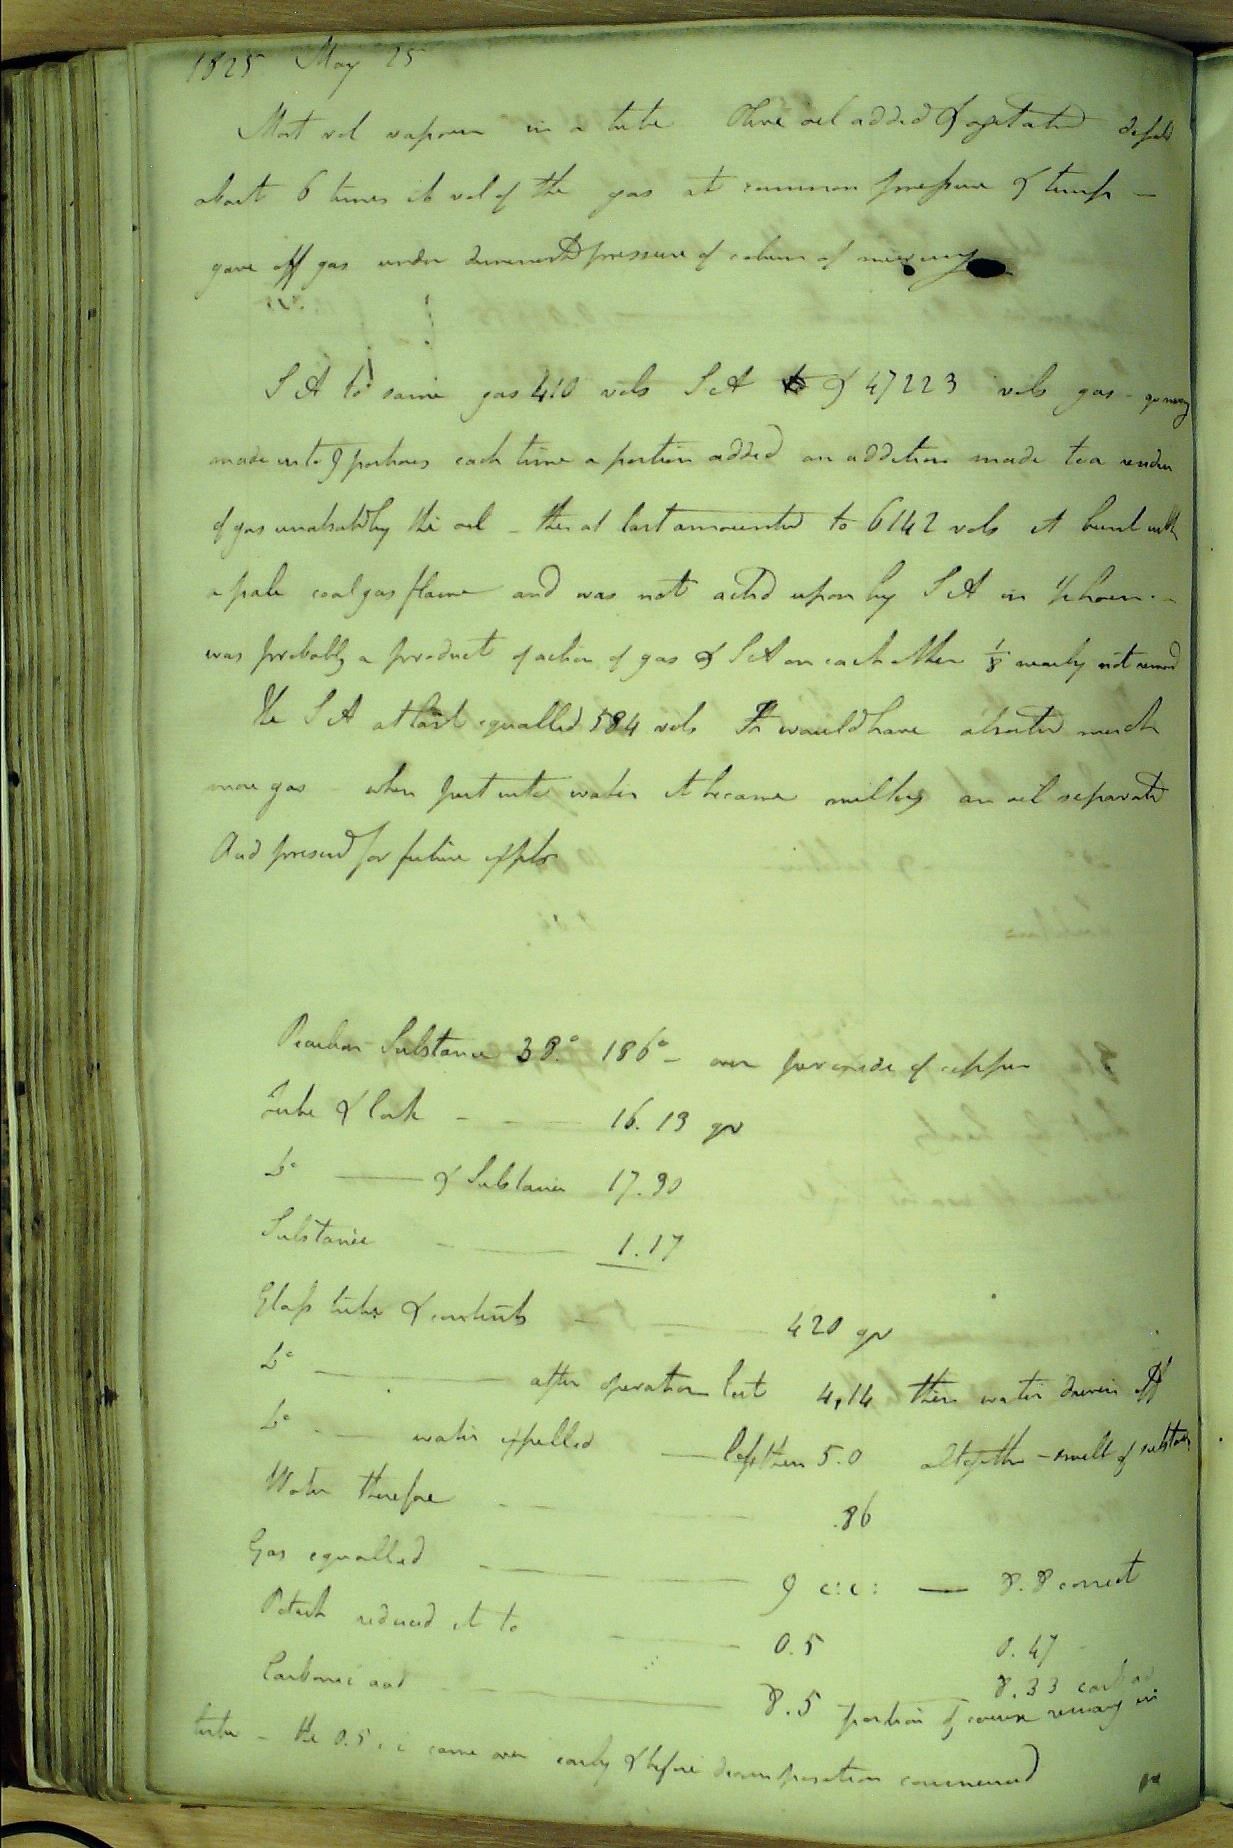 1825 May 25
Most vol vapour in a tube Olive oil added & agitated
about 6 times its vol of the gas at common pressure & temp -
gave off gas under diminished pressure of column of mercury
S A to same gas 410 vols S A & 47223 vols gas -
made into 9 portions each time a portion added an addition made to a residue
of gas unabsorbed by the oil - this at last amounted to 6142 vols it burnt with
a pale coal gas flame and was not acted upon by S A in
was probably a product of action of gas & S A on each other 1/8 nearly not
The S A at last equalled 584 vols It would have absorbed much
more gas - when put into water it became milky an oil separated
And preserved for future expts
Peculiar Substance 38.° 186° - over peroxide of copper
Tube & Cork - - 16.13 gr
D° - & Substance 17.30
Substance - 1.17
Glass tube & contents - 420 gr
D° - after operation lost 4,14 then water driven off
D° - water expelled - less than 5.0 altogether - smelt of substance
Water therefore - .86
Gas equalled - 9 c:c: - 8.8 correct
Potash reduced it to - 0.5 0.47
Carbonic acid - 8.5 8.33 carb ac
portion of course remains in
tube - the 0.5 c c came over early & before decomposition commenced